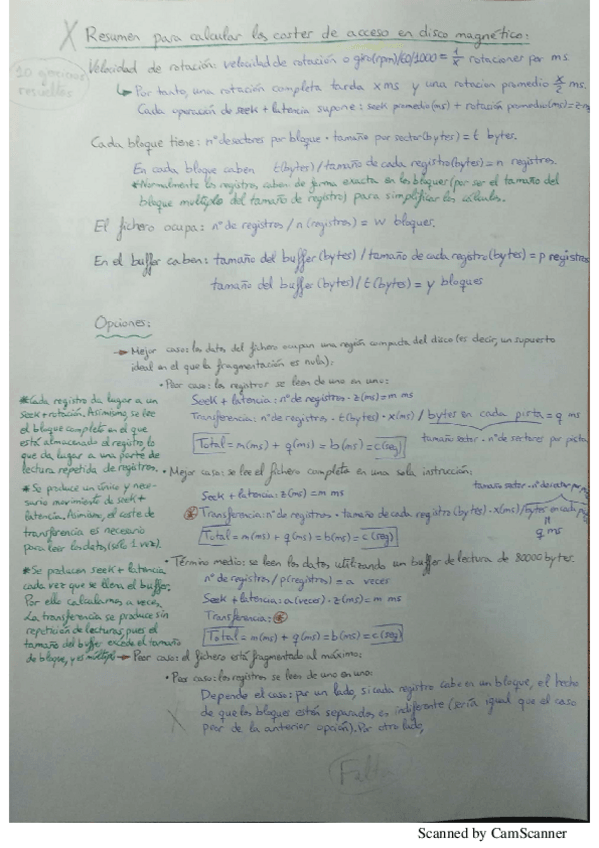 X Resumen para calcular los costes de acceso en disco magnético:
Velocidad de rotación: velocidad de rotación o giro(rpm)/60/1000 = 1/x rotaciones por ms.
10 resueltos
↳ Por tanto, una rotación completa tarda x ms y una rotación promedio x/2 ms.
Cada operación de seek + latencia supone: seek promedio(ms) + rotación promedio(ms) = z
Cada bloque tiene: nº de sectores por bloque · tamaño por sector(bytes) = t bytes.
En cada bloque caben t(bytes) / tamaño de cada registro(bytes) = n registros.
*Normalmente los registros caben de forma exacta en los bloques (por ser el tamaño del
bloque múltiplo del tamaño de registro) para simplificar los cálculos.
El fichero ocupa: nº de registros / n (registros) = w bloques.
En el buffer caben: tamaño del buffer(bytes) / tamaño de cada registro(bytes) = p registros
tamaño del buffer (bytes) / t (bytes) = y bloques
Opciones:
→ Mejor caso: los datos del fichero ocupan una región compacta del disco (es decir, un supuesto
ideal en el que la fragmentación es nula):
• Peor caso: los registros se leen de uno en uno:
Seek + latencia: nº de registros · z(ms) = m ms
Transferencia: nº de registros · t(bytes) · x(ms) / bytes en cada pista = q ms
tamaño sector · nº de sectores por pista
Total = m(ms) + q(ms) = b(ms) = c(seg)
*Cada registro da lugar a un
seek + rotación. Asimismo, se lee
el bloque completo en el que
está almacenado el registro, lo
que da lugar a una parte de
lectura repetida de registros.
• Mejor caso: se lee el fichero completo en una sola instrucción:
Seek + latencia: z(ms) = m ms
tamaño sector · nº de sectores por
* Transferencia: nº de registros · tamaño de cada registro (bytes) · x(ms) / bytes en cada
q ms
Total = m(ms) + q(ms) = b(ms) = c(seg)
* Se produce un único y nece-
sario movimiento de seek +
latencia. Asimismo, el coste de
transferencia es necesario
para leer los datos (sólo 1 vez).
• Término medio: se leen los datos utilizando un buffer de lectura de 80000 bytes.
nº de registros / p(registros) = a veces
Seek + latencia: a(veces) · z(ms) = m ms
Transferencia: *
Total = m(ms) + q(ms) = b(ms) = c(seg)
*Se producen seek + latencia
cada vez que se llena el buffer.
Por ello calculamos a veces.
La transferencia se produce sin
repetición de lecturas, pues el
tamaño del buffer excede el tamaño
de bloque, y es múltiplo
→ Peor caso: el fichero está fragmentado al máximo:
• Peor caso: los registros se leen de uno en uno:
Depende el caso: por un lado, si cada registro cabe en un bloque, el hecho
de que los bloques estén separados es indiferente (sería igual que el caso
peor de la anterior opción). Por otro lado,
X
Falta
Scanned by CamScanner